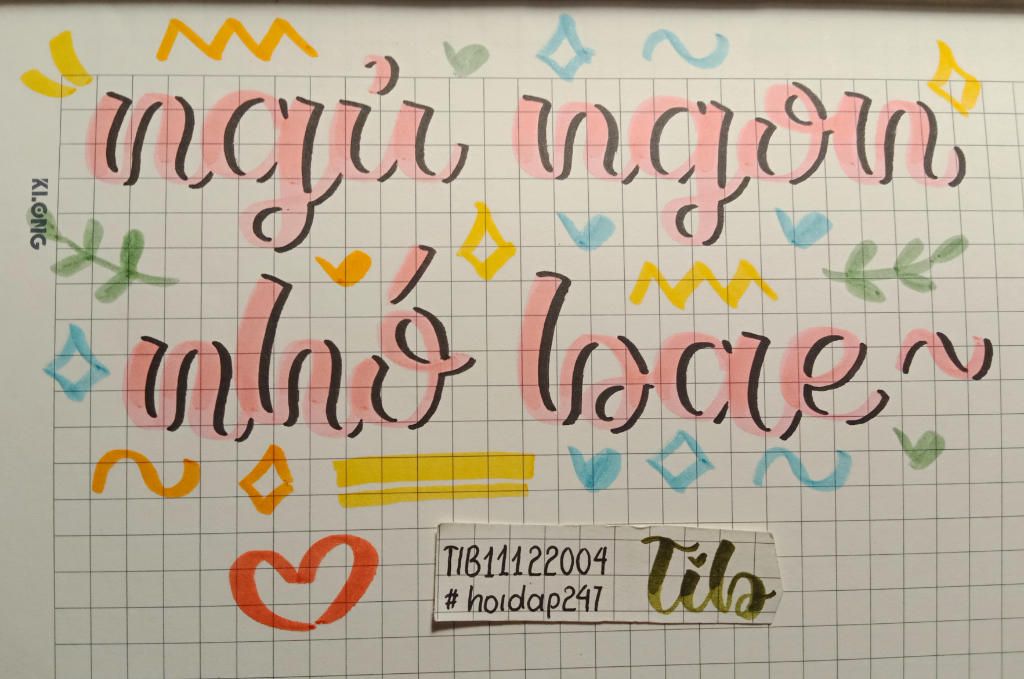 ngủ ngon
nhó bae ~
KLONG
TIB11122004
# hoidap247
Tib